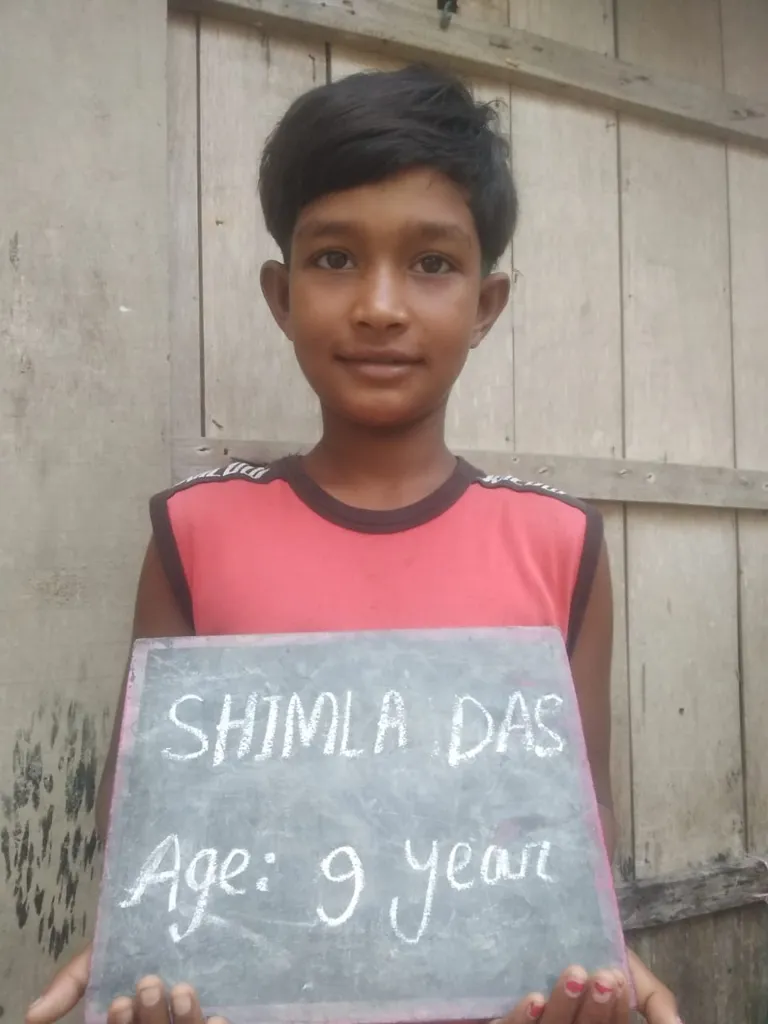 SHIMLA DAS
Age: 9 year